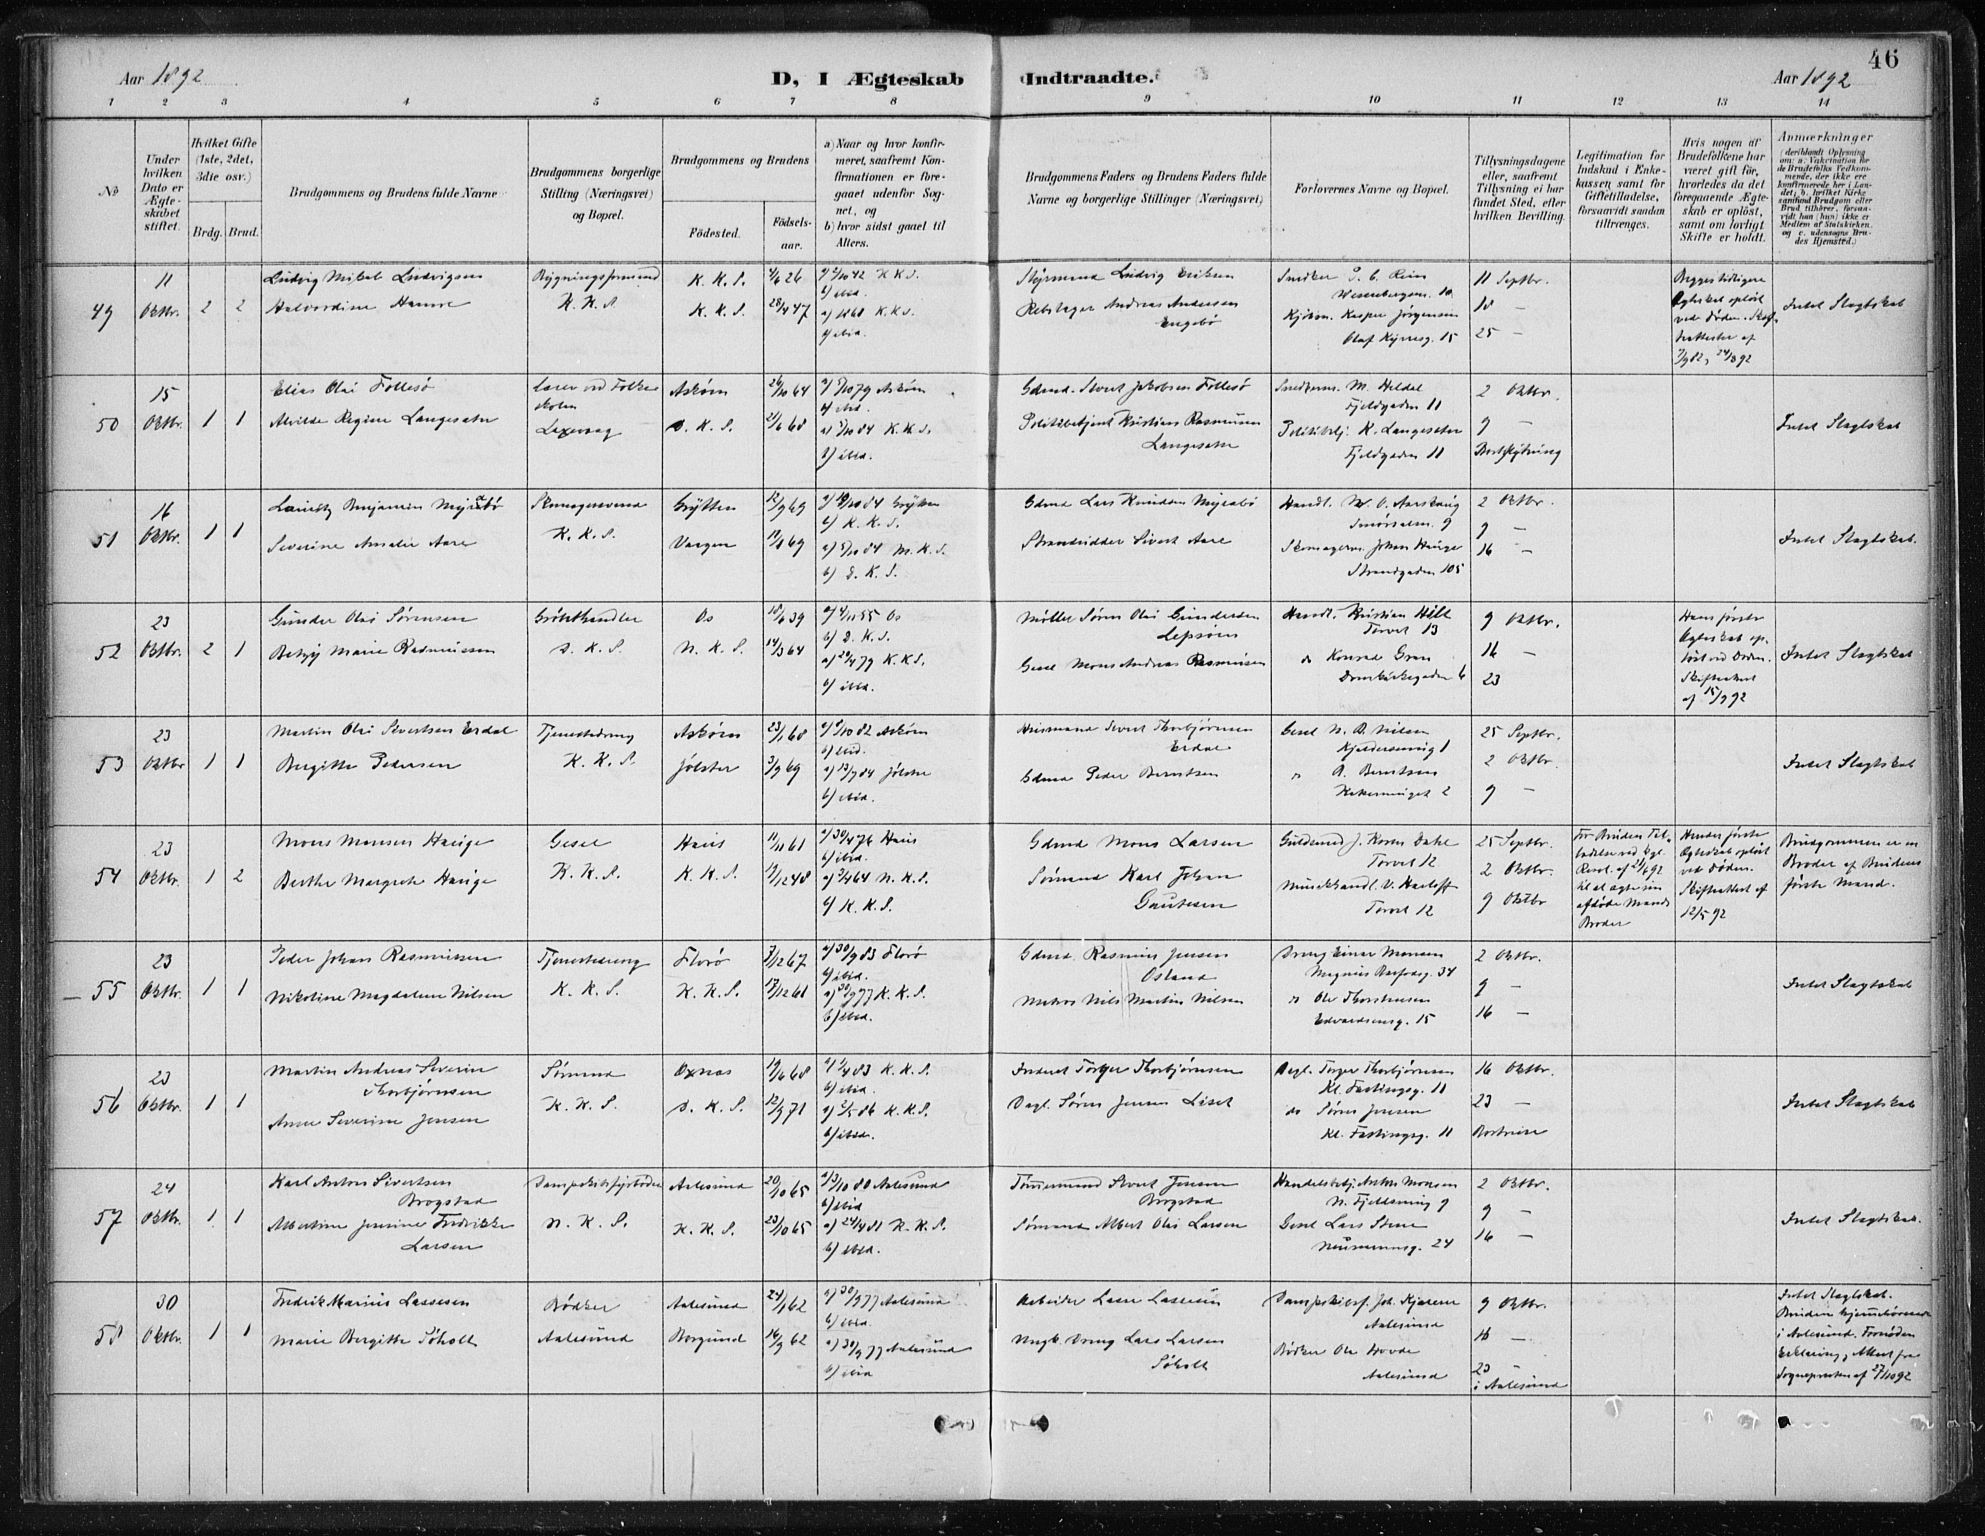 46
Aar 1892
D, I Ægteskab Indtraadte.
Aar 1892
1 2 3 4 5 6 7 8 9 10 11 12 13 14
No
Under hvilken Dato er Ægte-skabet stiftet.
Hvilket Gifte (1ste, 2det, 3die osv.)
Brdg. Brud.
Brudgommens og Brudens fulde Navne
Brudgommens borgerlige Stilling (Næringsvei) og Bopæl.
Brudgommens og Brudens
Fødested. Fødsels-aar.
a) Naar og hvor konfir-meret, saafremt Kon-firmationen er fore-gaaet udenfor Sog-net, og
b) hvor sidst gaaet til Alters.
Brudgommens Faders og Brudens Faders fulde Navne og borgerlige Stillinger (Næringsvei)
Forlovernes Navne og Bopæl.
Tillysningsdagene eller, saafremt Tillysning ei har fundet Sted, efter hvilken Bevilling.
Legitimation for Indskud i Enke-kassen samt for Giftetilladelse, forsaavidt saadan tiltrænges.
Hvis nogen af Brudefolkene har været gift før, hvorledes da det foregaaende Ægte-skab er opløst, samt om lovligt Skifte er holdt.
Anmærkninger
(deriblandt Oplysning om: a. Vakcination for de Brudefolks Vedkom-mende, der ikke ere konfirmerede her i Lan-det; b. hvilket Kirke-samfund Brudgom eller Brud tilhører, forsaa-vidt han (hun) ikke er Medlem af Statskirken, og c. udensogns Bru-des Hjemsted.)
49 11 Oktbr. 2 2
Ludvig Mikal Ludvigsen
Halvordine Hamre
Bygningsformand K. K. S.
K. K. S. 4/6 26
K. K. S. 28/4 47
a) 2/10 42 K. K. S.
b) ibid.
a) 1860 K. K. S.
b) ibid.
Styrmand Ludvig Eriksen
Rebslager Andreas Andersen Engebø
Wesenbergsm. 10
Kasper Jørgensen
Olaf Kyrresg. 15
11 Septbr.
18 —
25 —
Begges tidligere Ægteskab opløst ved Døden.
Intet Slagtskab
50 15 Oktbr. 1 1
Elias Olai Follesø
Alvilde Regine Langesæter
Lærer ved Folkeskolen
Laxevaag
Askøen 26/10 64
D. K. S. 21/6 68
a) 5/10 79 Askøen
b) ibid.
a) 5/10 84 K. K. S.
b) ibid.
Gdmd. Sivert Jakobsen Follesø
Politibetjent Kristian Rasmussen Langesæter
Snedkerm. M. Heldal
Fjeldgaden 11
Politibetj. K. Langesæter
Fjeldgaden 11
2 Oktbr.
9 —
Bortflytning
Intet Slagtskab
51 16 Oktbr. 1 1
Lauritz Benjamin Myrabø
Severine Amalie Aare
Skomagersvend
K. K. S.
Grytten 12/9 69
Vangen 69
a) 84 Grytten
b) K. K. S.
a) 5/10 84 M. K. S.
b) D. K. S.
Gdmd Lars Knudsen Myrabø
Strandsidder Sivert Aare
Handl. W. O. Aarskaug
Smørsalm. 9
Skomagersv. Johan Hauge
Strandgaden 105
2 Oktbr.
9 —
16 —
Intet Slagtskab.
52 23 Oktbr. 2 1
Gunder Olai Sørensen
Betzy Marie Rasmussen
Brødhandler
D. K. S.
Os 18/6 39
N. K. S. 14/3 64
a) 4/11 55 Os
b) D. K. S.
a) 20/4 79 K. K. S.
b) ibid.
Møller Søren Olai Gundersen Lepsøen
Gesel Mons Andreas Rasmussen
Handl. Kristian Hill
Torvet 13
do Konrad Gran
Domkirkegaden 6
9 Oktbr.
16 —
23
Hans første Ægteskab op-løst ved Døden. Skifteattest af 15/9 92
Intet Slagtskab
53 23 Oktbr 1 1
Martin Olai Sivertsen Erdal
Bergitte Pedersen
Tjenestedreng
K. K. S.
Askøen 23/1 68
Jølster 3/9 69
a) 1/10 82 Askøen
b) ibid.
a) 13/7 84 Jølster
b) ibid.
Husmand Sivert Thorbjørnsen Erdal
Gdmd Peder Berntsen
Gesel N. B. Nilsen
B. Berntsen
25 Septbr.
2 Oktbr.
9 —
Intet Slagtskab
54 23 Oktbr. 1 2
Mons Monsen Hauge
Berthe Margrete Hauge
Gesel
K. K. S.
Haus 11/11 61
K. K. S. 9/12 48
a) 30/4 76 Haus
b) ibid.
a) 3/4 64 N. K. S.
b) K. K. S.
Gdmd Mons Larsen
Sømand Karl Johan Gautesen
Guldsmed J. Koren
Torvet 12
Musikhandl. V. Harloff
Torvet 12
25 Septbr.
2 Oktbr.
9 Oktbr
For Bruden Til-ladelse ved kgl. Resol. af 21/6 92 til at ægte sin afdøde Mands Broder
Hendes første Ægteskab opløst ved Døden. Skifteattest af 12/5 92
Brudgommen er en Broder af Brudens første Mand.
55 23 Oktbr. 1 1
Peder Johan Rasmussen
Nikoline Magdalene Nilsen
Tjenestedreng
K. K. S.
Florø 7/12 67
K. K. S. 17/12 61
a) 30/9 83 Florø
b) ibid.
a) 30/9 77 K. K. S.
b) ibid.
Gdmd. Rasmus Jensen Osland
Matros Nils Martin Nilsen
Dreng Einar Monsen
Magnus Barfodsg. 34
do Ole Thorstensen
Edvardsensg. 15
2 Oktbr.
9 —
16 —
Intet Slagtskab
56 23 Oktbr. 1 1
Martin Andreas Severin Thorbjørnsen
Anne Severine Jensen
Sømand
K. K. S.
Oxnæs 19/6 68
D. K. S. 12/9 71
a) 1/4 83 K. K. S.
b) ibid.
a) 2/5 86 K. K. S.
b) ibid.
Inderst Torger Thorbjørnsen
Dagl. Søren Jensen Liset
Dagl. Torger Thorbjørnsen
Kl. Fastingsg. 11
do Søren Jensen
Kl. Fastingsg. 11
16 Oktbr.
23 —
Bortreise
Intet Slagtskab
57 24 Oktbr. 1 1
Karl Anton Sivertsen Brogstad
Albertine Jensine Fredrikke Larsen
Dampskibsfyrbøder
N. K. S.
Aalesund 20/10 65
K. K. S. 23/10 65
a) 3/10 80 Aalesund
b) ibid
a) 24/4 81 K. K. S.
b) ibid.
Tømmermand Sivert Jensen Brogstad
Sømand Albert Olai Larsen
Handelsbetj. Anton Monsen
N. Fjeldsmug 9
Gesel Lars Stene
Neumannsg. 24
2 Oktbr.
9 —
16 —
Intet Slagtskab.
58 30 Oktbr. 1 1
Fredrik Marius Lassesen
Marie Bergitte Søholt
Bødker
Aalesund
Aalesund 24/1 62
Borgund 16/9 62
a) 30/9 77 Aalesund
b) ibid.
a) 30/9 77 Aalesund
b) ibid
Arbeider Lasse Lassesen
Ungk. Dreng Lars Larsen Søholt
Dampskibsf. Joh. Kjærem
Aalesund
Bødker Ole Hovde
Aalesund
9 Oktbr.
16 —
23 —
i Aalesund
Intet Slagtskab. Bruden hjemmehørende i Aalesund. Fornøden Erklæring, Attest fra Sognepresten af 27/10 92